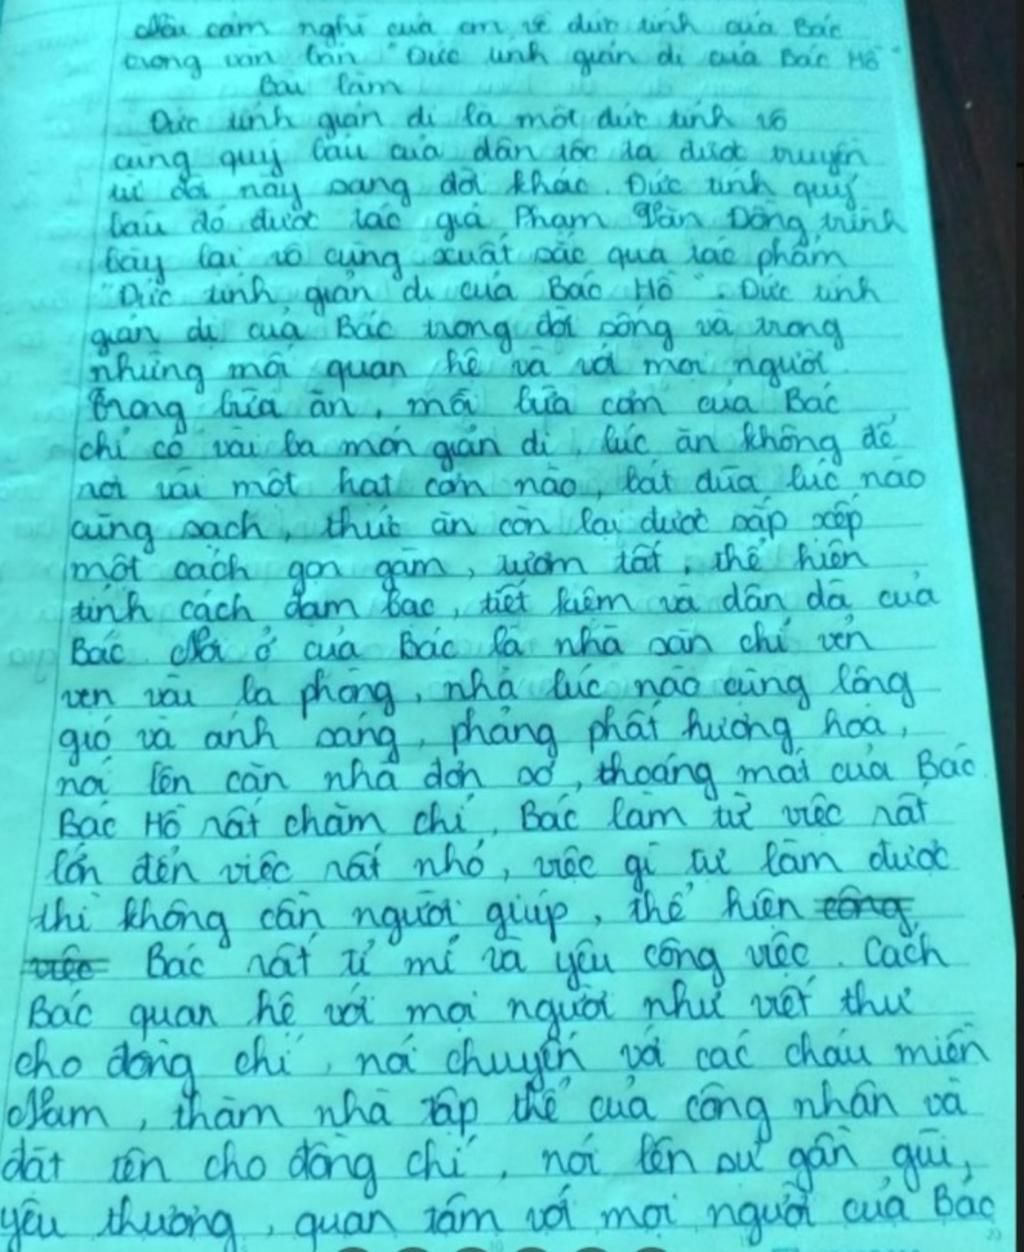 Nêu cảm nghĩ của em về đức tính của Bác
trong văn bản "Đức tính giản dị của Bác Hồ"
Bài làm
Đức tính giản dị là một đức tính vô
cùng quý báu của dân tộc ta được truyền
từ đời này sang đời khác. Đức tính quý
báu đó được tác giả Phạm Văn Đồng trình
bày lại vô cùng xuất sắc qua tác phẩm
"Đức tính giản dị của Bác Hồ". Đức tính
giản dị của Bác trong đời sống và trong
những mối quan hệ và với mọi người.
Trong bữa ăn, mỗi bữa cơm của Bác
chỉ có vài ba món giản dị, lúc ăn không để
rơi vãi một hạt cơm nào, bát đũa lúc nào
cũng sạch, thức ăn còn lại được sắp xếp
một cách gọn gàm, tươm tất, thể hiện
tính cách đạm bạc, tiết kiệm và dân dã của
Bác. Nơi ở của Bác là nhà sàn chỉ vẻn
vẹn vài ba phòng, nhà lúc nào cũng lộng
gió và ánh sáng, phảng phất hương hoa,
nói lên căn nhà đơn sơ, thoáng mát của Bác.
Bác Hồ rất chăm chỉ, Bác làm từ việc rất
lớn đến việc rất nhỏ, việc gì tự làm được
thì không cần người giúp, thể hiện công
việc Bác rất tỉ mỉ và yêu công việc. Cách
Bác quan hệ với mọi người như viết thư
cho đồng chí, nói chuyện với các cháu miền
Nam, thăm nhà tập thể của công nhân và
đặt tên cho đồng chí, nói lên sự gần gũi,
yêu thương, quan tâm với mọi người của Bác